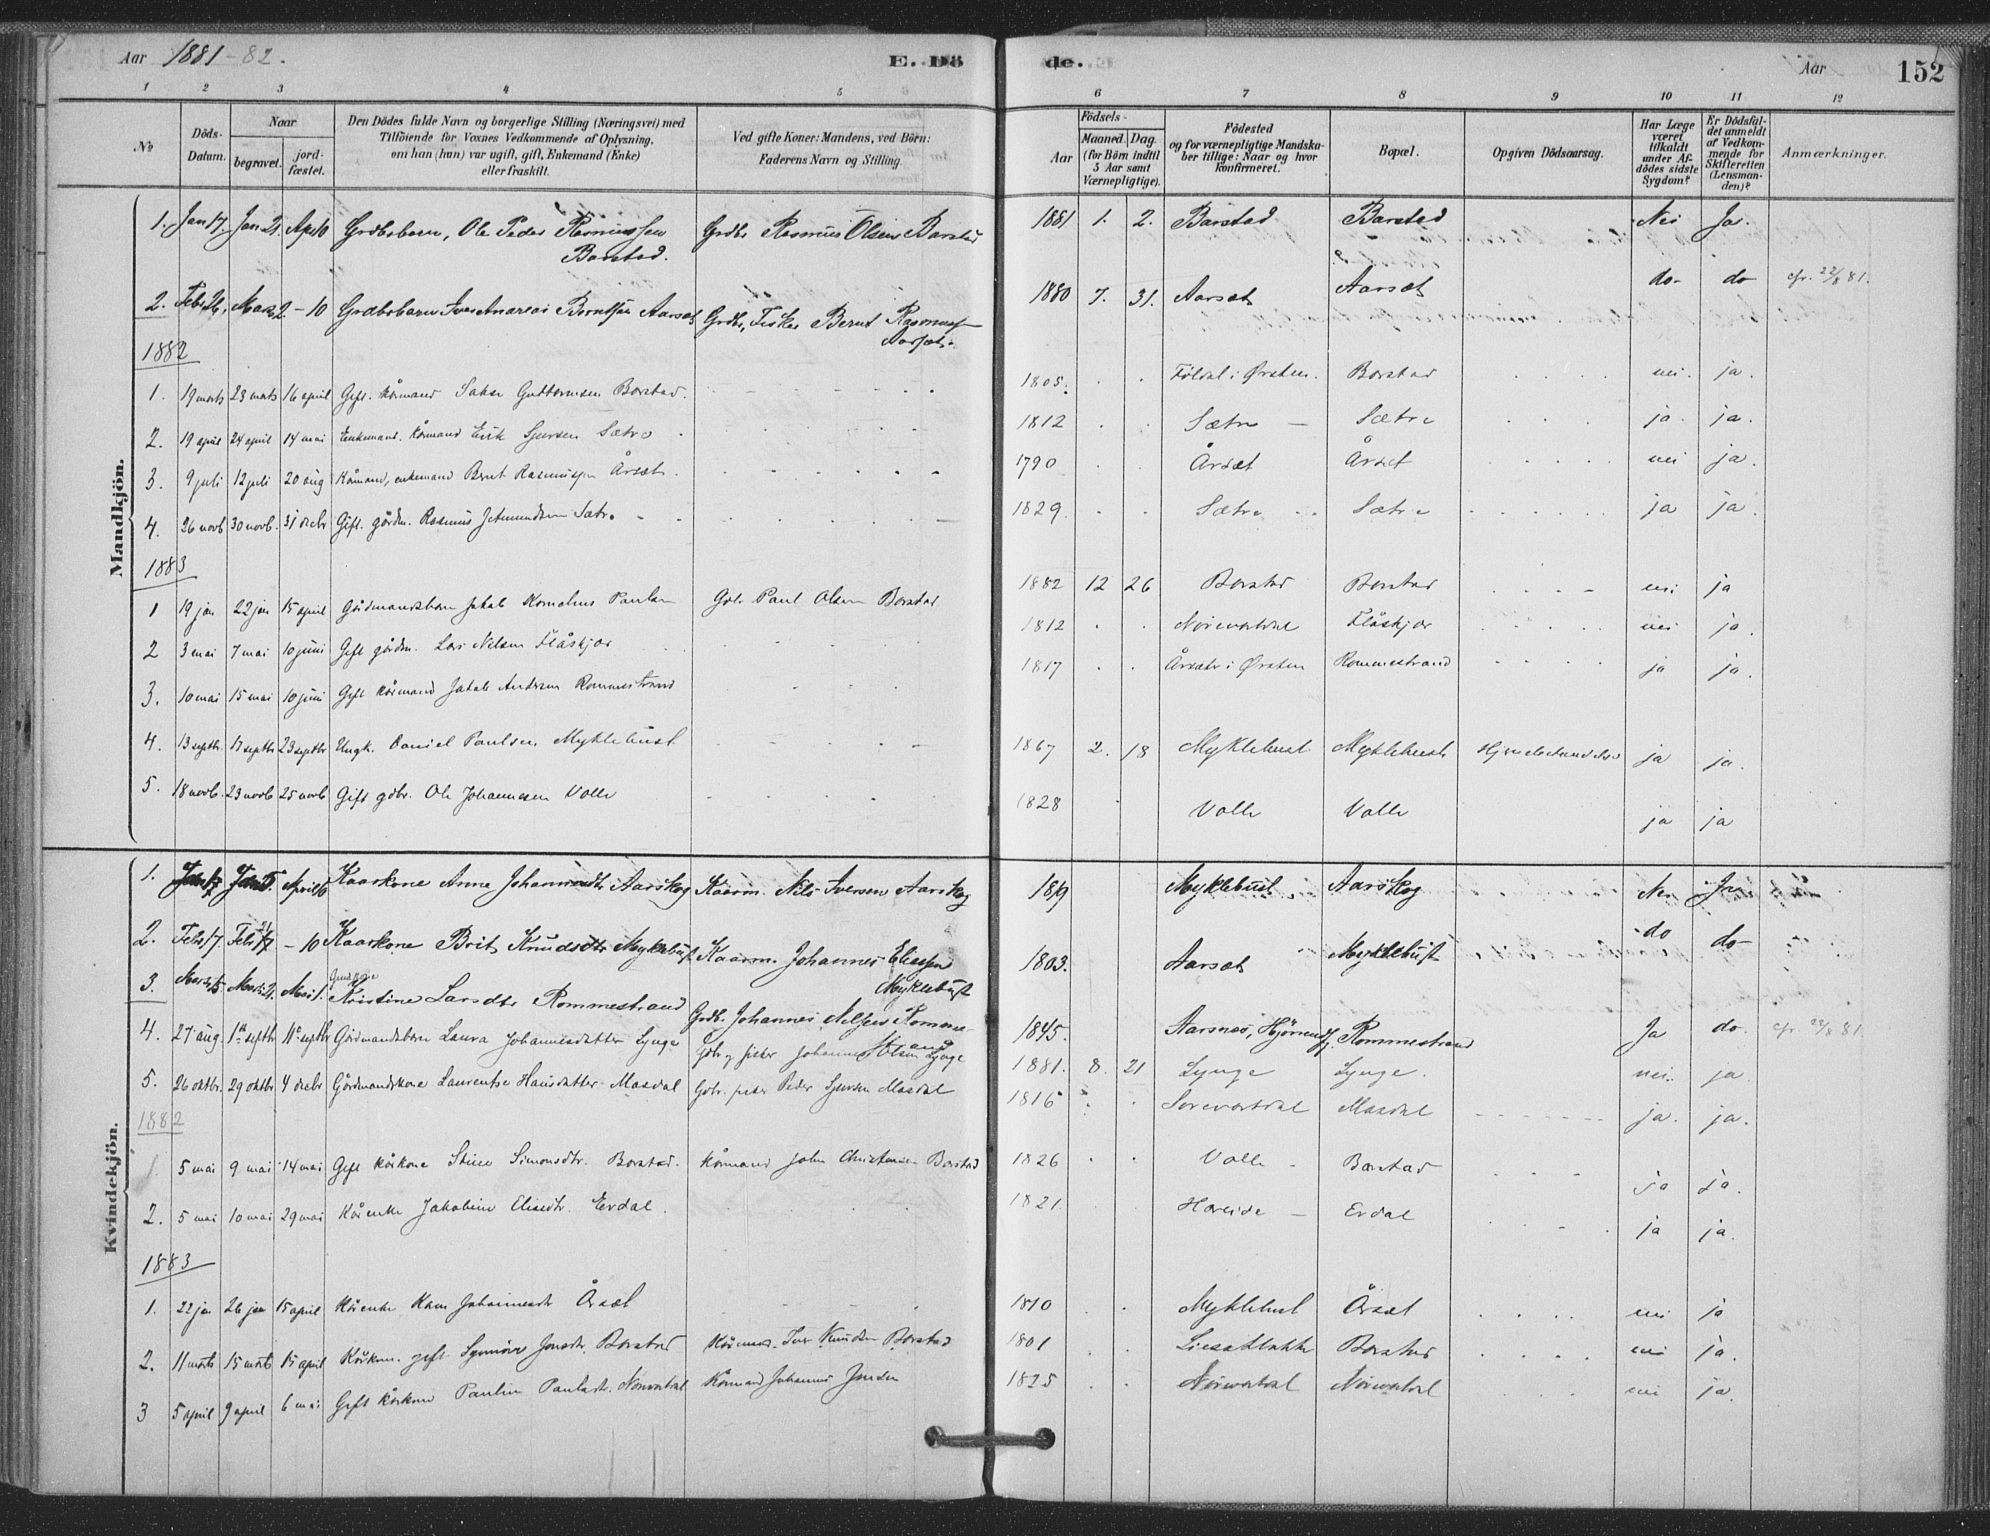 Aar 1881-82. E. Dö de. Aar 152
1 2 3 4 5 6 7 8 9 10 11 12
No
Döds-Datum.
Naar
begravet.
jordfæstet.
Den Dödes fulde Navn og borgerlige Stilling (Næringsvei) med
Tilföiende for Voxnes Vedkommende af Oplysning,
om han (hun) var ugift, gift, Enkemand (Enke)
eller fraskilt.
Ved gifte Koner: Mandens, ved Börn:
Faderens Navn og Stilling.
Födsels-
Aar
Maaned. Dag.
(for Börn indtil
5 Aar samt
Værnepligtige).
Födested
og for værnepligtige Mandskaber tillige: Naar og hvor
konfirmeret.
Bopæl.
Opgiven Dödsaarsag.
Har Læge
været
tilkaldt
under Afdödes sidste
Sygdom?
Er Dödsfaldet anmeldt
af Vedkommende for
Skifteretten
(Lensmanden)?
Anmærkninger.
Mandkjön.
1. Jan 17. Jan 21. Apr 10 Grdbsbarn, Ole Peder Rasmussen Barstad. Grdbr Rasmus Olsen Barstad 1881 1. 2. Barstad Barstad Nei Ja.
2. Febr 26. Marts 2 - 10 Grdbsbarn Iver Andreas Berntsen Aarsæt Grdbr, Fisker Bernt Rasmuss. Aarsæt. 1880 7. 31. Aarsæt Aarsæt do- do cfr. 22/8 81.
1882
1. 19 marts 23 marts 16 april Gift. kårmand Sakse Guttormsen Borstad. 1805. Földal i Ørsten. Borstad nei. ja.
2. 19 april 24 april 14 mai Enkemand. kårmand Erik Sjursen Sætre 1812 Sætre Sætre ja. ja.
3. 9 juli 12 juli 20 aug Kårmand, enkemand Bernt Rasmussen Årsæt. 1790 Årsæt Årsæt nei ja.
4. 26 novb 30 novb. 31 decbr Gift. gårdm. Rasmus Jetmundsen Sætre 1829. Sætre Sætre ja ja.
1883
1 19 jan 22 jan 15 april Gårdmandsbarn Jakob Kornelius Paulsen Gbr. Paul Olsen Borstad 1882 12 26 Borstad Borstad nei ja
2 3 mai 7 mai 10 juni Gift gårdm. Lars Nilsen Flåskjær 1812 Norevartdal Flåskjær nei ja.
3. 10 mai 15 mai 10 juni Gift kårmand Jakob Andersen Rommestrand 1817 Årsæter i Ørsten Rommestrand ja ja.
4. 13 septbr. 17 septbr 23 septbr Ungk. Daniel Paulsen Myklebust 1867 2. 18 Myklebust Myklebust ja ja.
5. 18 novb. 23 novb 25 novb Gift gdbr. Ole Johannesen Volle 1828 Volle Volle ja ja
Kvindekjön.
1. April 10 Kaarkone Anne Johannesdtr Aarskog Kaarm. Nils Iversen Aarskog 1819 Myklebust Aarskog Nei Ja
2. Febr 17. - 10 Kaarkone Brit Knudsdtr Myklebust Kaarm. Johannes Eliassen Myklebust 1803. Aarsæt Myklebust do do-
3. Marts 15 Marts 21. Mai 1. Kristine Larsdtr Rommestrand Grdb. Johannes Nilsen Rommestrand 1845. Aarsnæs, Hjørendf. Rommestrand Ja do. cfr. 22/8 81.
4. 27 aug. 1ste septbr 11te septbr Gårdmandsbarn Laura Johannesdatter Lynge Gdbr og fisker Johannes Olsen Lynge 1881. 8. 21 Lynge Lynge. nei. ja.
5. 26 oktbr. 29 oktbr 4 decbr Gårdmandskone Laurentse Hansdatter Masdal Gdbr. fisker Peder Sjursen Masdal 1816 Sørevartdal Masdal ja. ja.
1882
1. 5 mai 9 mai 14 mai Gift kårkone Stine Simonsdtr. Borstad. kårmand John Christensen Borstad 1826 Volle Borstad ja ja.
2. 5 mai 10 mai 29 mai Kårenke Jakobine Eliasdtr. Erdal. 1821. Hareide Erdal ja ja.
1883
1. 22 jan 26 jan 15 april Kårenke Karn Johannesdtr Årsæt 1810 Myklebust Årsæt nei ja
2. 11 marts 15 marts 15 april Kårkone. gift. Synnöve Jonsdtr. Borstad Kårmand. Iver Knudsen Borstad 1801 Borstad nei ja.
3 5 april 9 april 6 mai Gift kårkone Pauline Paulsdtr. Norevartdal Kårmand Johannes Jensen 1825 Norevartdal Norevartdal nei ja.